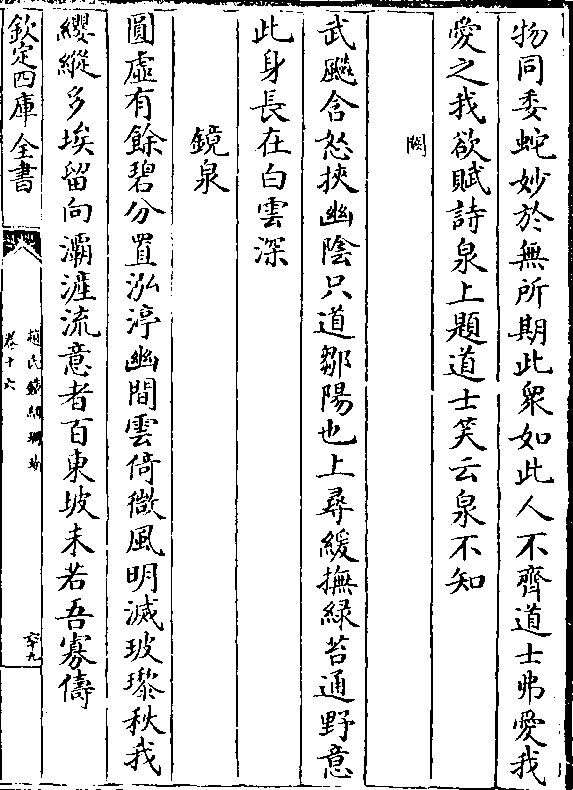 物同委蛇妙於無所期此眾如此人不齊道士弗愛我
愛之我欲賦詩泉上題道士笑云泉不知
闕
武颺含怒挾幽陰只道鄒陽也上尋緩撫緑苔通野意
此身長在白雲深
鏡泉
圓虚有餘碧分置泓渟幽閒雲倚微風明滅玻瓈秋我
纓縱多埃留向灞涯流意者百東坡未若吾寡儔
欽定四庫全書
趙氏鐵網珊瑚
卷十六